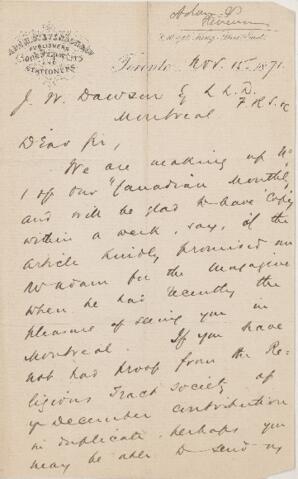 Adam, S
Stevenson
ADAM, STEVENSON & CO.
PUBLISHERS
BOOK IMPORTERS
AND
STATIONERS
Toronto Nov. 15. 1871.
J. W. Dawson Esq L.L.D.
F.R.S. &c
Montreal
Dear Sir,
We are making up No
1 of our "Canadian Monthly,"
and will be glad to have 'copy'
within a week, say, of the
article kindly promised our
Mr Adam for the Magazine
when he had recently the
pleasure of seeing you in
Montreal. If you have
not had proof from the Re-
ligious Tract Society of
yr December contribution
in duplicate perhaps you
may be able to send us